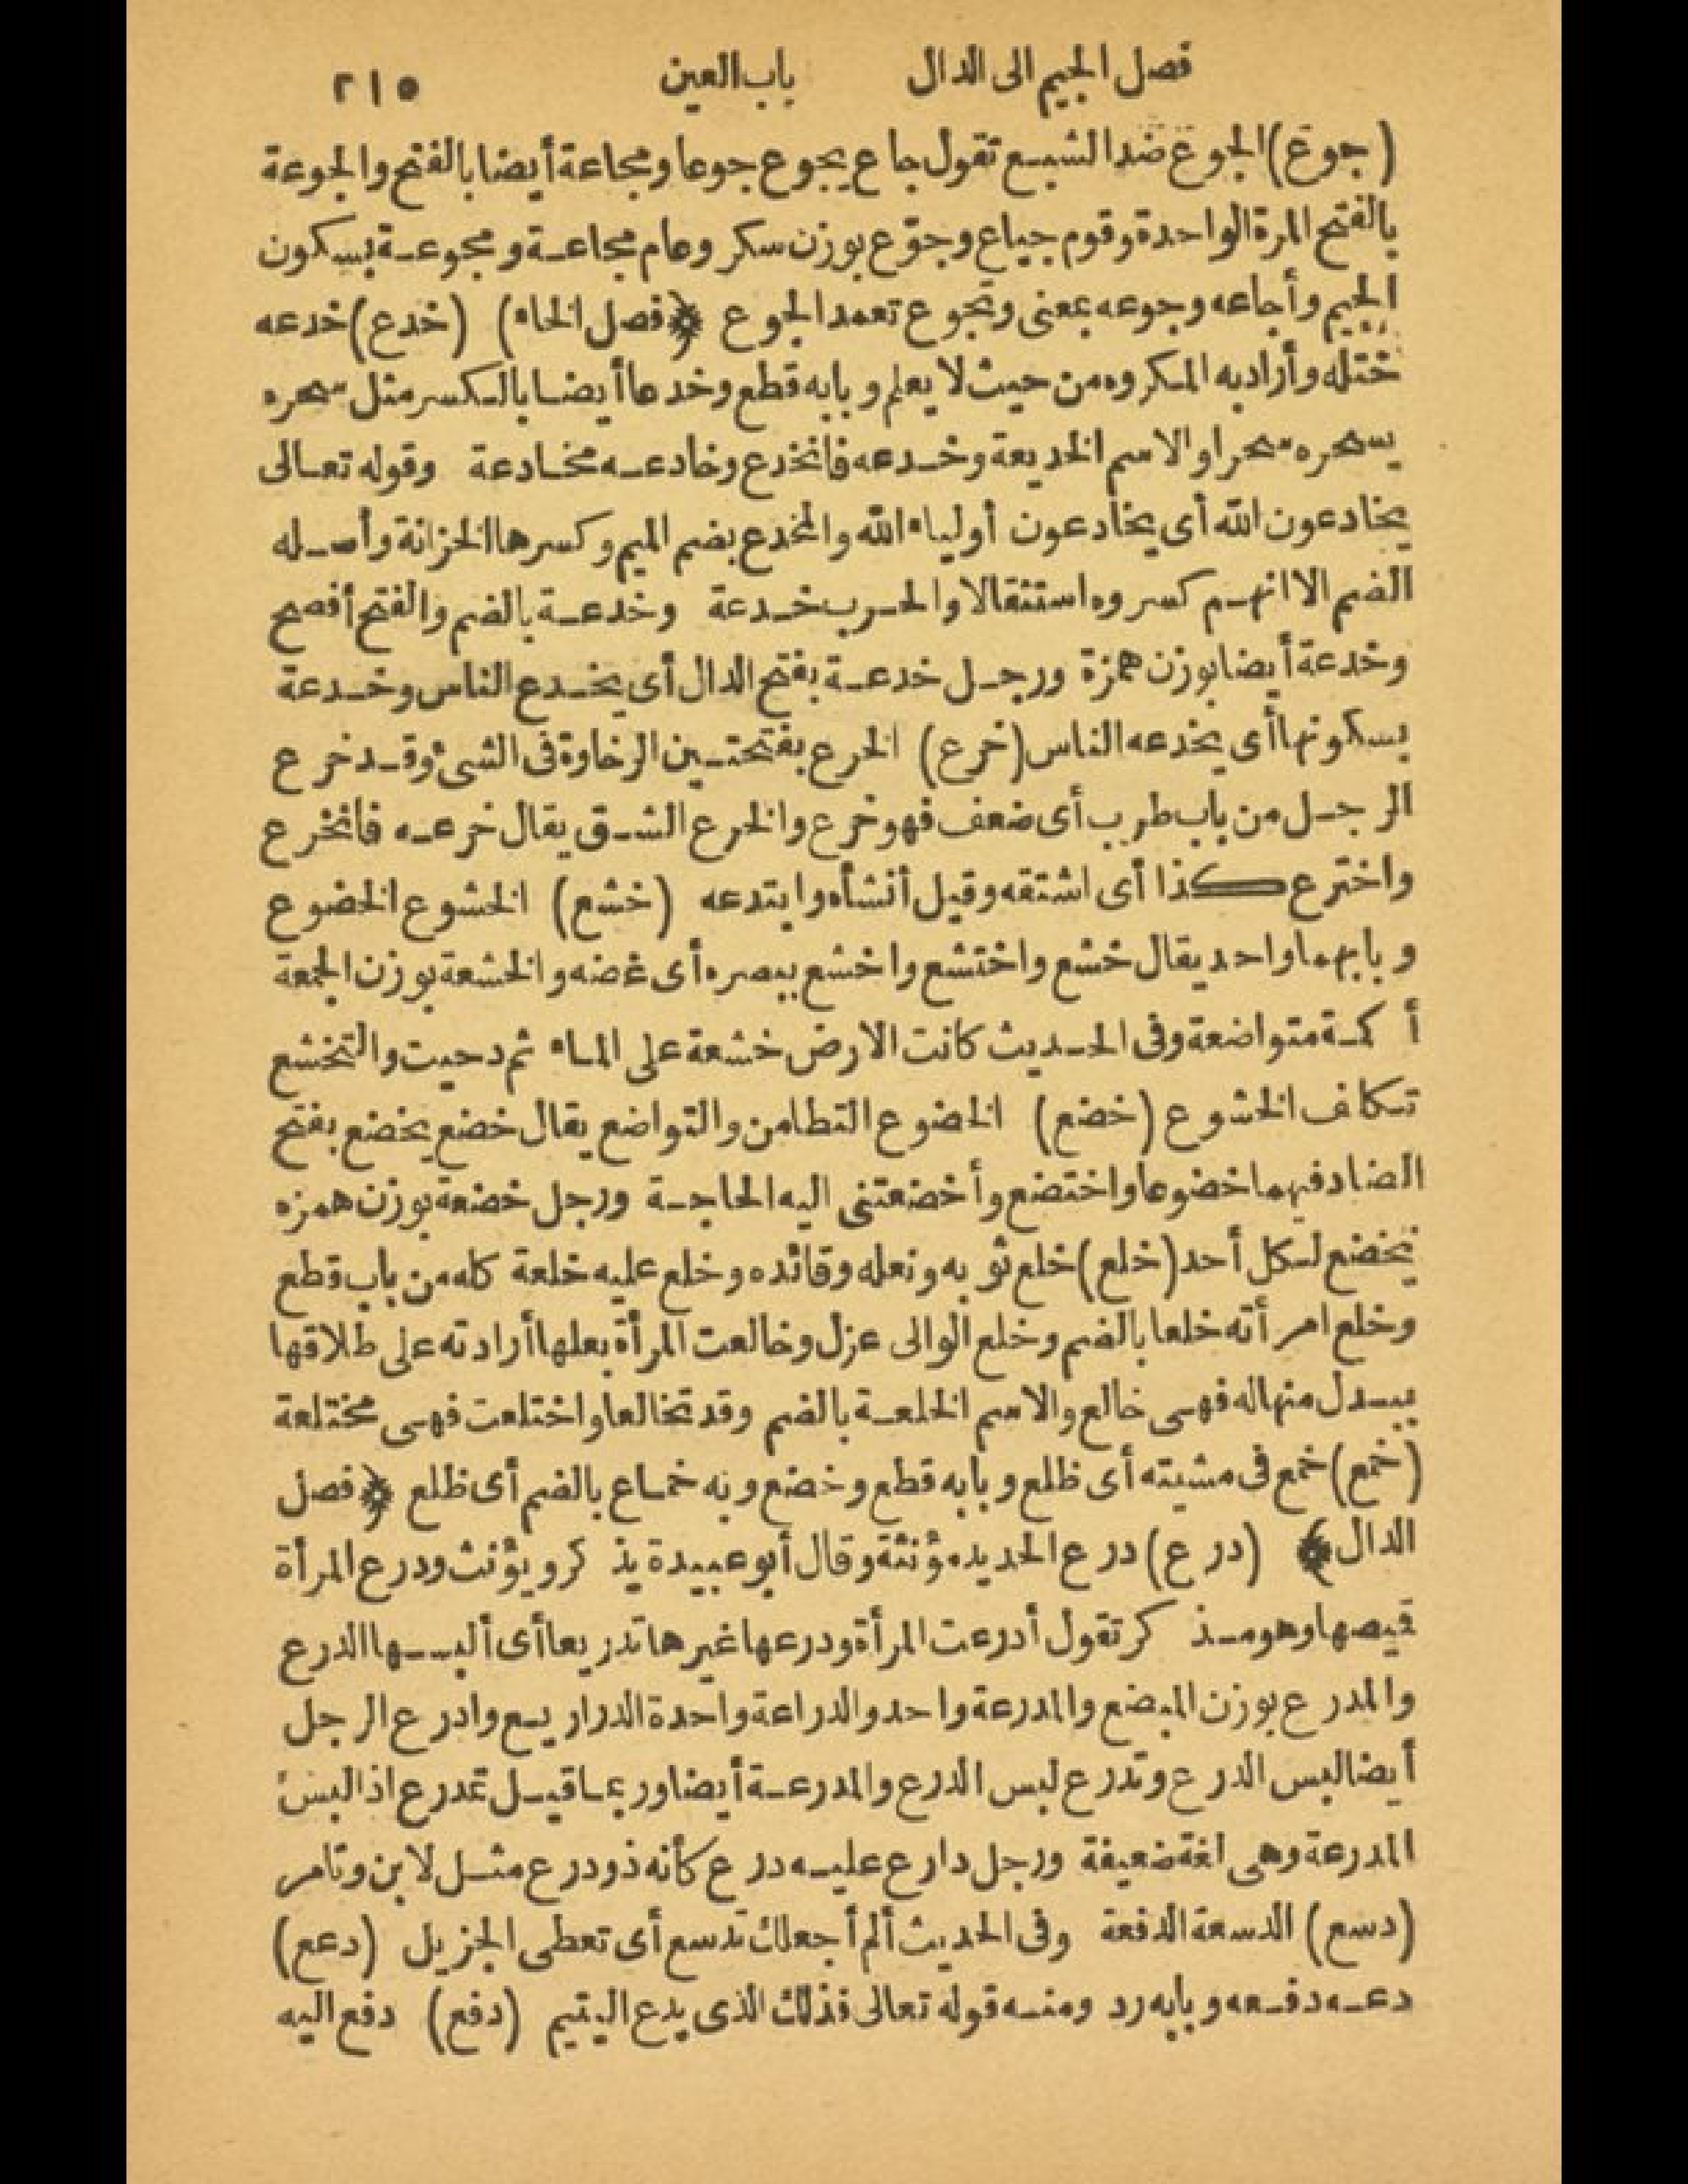 فصل الجيم الى الدال باب العين ٢١٥
(جوع) الجوع ضد الشبع تقول جاع يجوع جوعا ومجاعة أيضا بالفتح والجوعة
بالفتح المرة الواحدة وقوم جياع وجوّع بوزن سكر وعام مجاعة ومجوعة بسكون
الجيم وأجاعه وجوعه بمعنى وتجوع تعمد الجوع ﴿فصل الخاء) (خدع) خدعه
ختله وأراد به المكروه من حيث لا يعلم وبابه قطع وخدعا أيضا بالكسر مثل سحره
يسحره سحرا والاسم الخديعة وخدعه فانخدع وخادعه مخادعة وقوله تعالى
يخادعون الله أى يخادعون أولياء الله والمخدع بضم الميم وكسرها الخزانة وأصله
الضم الا انهم كسروه استثقالا والحرب خدعة وخدعة بالضم والفتح أفصح
وخدعة أيضا بوزن همزة ورجل خدعة بفتح الدال أى يخدع الناس وخدعة
بسكونها أى يخدعه الناس (خرع) الخرع بفتحتين الرخاوة فى الشئ وقد خرع
الرجل من باب طرب أى ضعف فهو خرع والخرع الشق يقال خرعه فانخرع
واخترع كذا أى اشتقه وقيل أنشأه وابتدعه (خشع) الخشوع الخضوع
وبابهما واحد يقال خشع واختشع واخشع ببصره أى غضه والخشعة بوزن الجمعة
أكمة متواضعة وفى الحديث كانت الارض خشعة على الماء ثم دحيت والتخشع
تكاف الخشوع (خضع) الخضوع التطامن والتواضع يقال خضع يخضع بفتح
الضاد فيهما خضوعا واختضع وأخضعتنى اليه الحاجة ورجل خضعة بوزن همزه
يخضع لكل أحد (خلع) خلع ثوبه ونعله وقائده وخلع عليه خلعة كله من باب قطع
وخلع امرأته خلعا بالضم وخلع الوالى عزل وخالعت المرأة بعلها أرادته على طلاقها
ببدل منها له فهى خالع والاسم الخلعة بالضم وقد تخالعا واختلعت فهى مختلعة
(خمع) خمع فى مشيته أى ظلع وبابه قطع وخضع وبه خماع بالضم أى ظلع ﴿فصل
الدال﴾ (درع) درع الحديد مؤنثة وقال أبو عبيدة يذكر ويؤنث ودرع المرأة
قميصها وهو مذكر تقول أدرعت المرأة ودرعها غيرها تدريعا أى ألبسها الدرع
والمدرع بوزن المبضع والمدرعة واحد والدراعة واحدة الدراريع وادرع الرجل
أيضا لبس الدرع وتدرع لبس الدرع والمدرعة أيضا وربما قيل تمدرع اذا لبس
المدرعة وهى لغة ضعيفة ورجل دارع عليه درع كأنه ذو درع مثل لابن وتامر
(دسع) الدسعة الدفعة وفى الحديث ألم أجعلك تدسع أى تعطى الجزيل (دعع)
دعه دفعه وبابه رد ومنه قوله تعالى فذلك الذى يدع اليتيم (دفع) دفع اليه